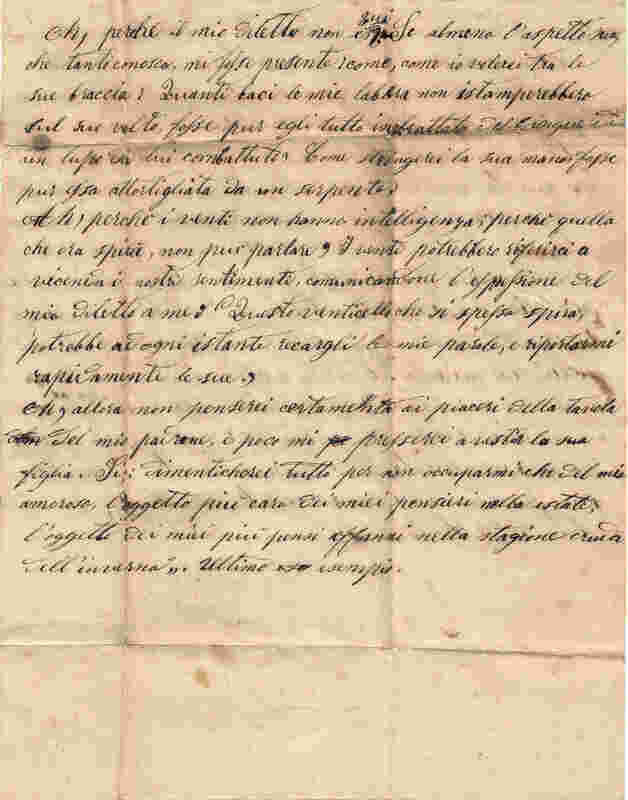 quì
Ah, perchè il mio diletto non è Se almeno l'aspetto suo,
che tanto conosco, mi fosse presente! come, come io volerei tra le
sue braccia! Quanti baci le mie labbra non istamperebbero
sul suo volto, fosse pur egli tutto imbrattato del sangue
un lupo da lui combattuto! Come stringerei la sua mano, fosse
pur essa attortigliata da un serpente!
Ah, perchè i venti non hanno intelligenza; perchè quello
che ora spira, non può parlare? I venti potrebbero riferirci a
vicenda i nostri sentimenti, comunicandone l'espressione del
mio diletto a me! Questo venticello che sì spesso spira,
potrebbe ad ogni istante recargli le mie parole, e riportarmi
rapidamente le sue!
Ah, allora non penserei certamente ai piaceri della tavola
del mio padrone, e poco mi presserei a vestir la sua
figlia. Sì: dimenticherei tutto per non occuparmi che del mio
amoroso, l'oggetto più caro dei miei pensieri nella estate,
l'oggetto dei miei più pensi affanni nella stagione cruda
dell'inverno". Ultimo esempio.